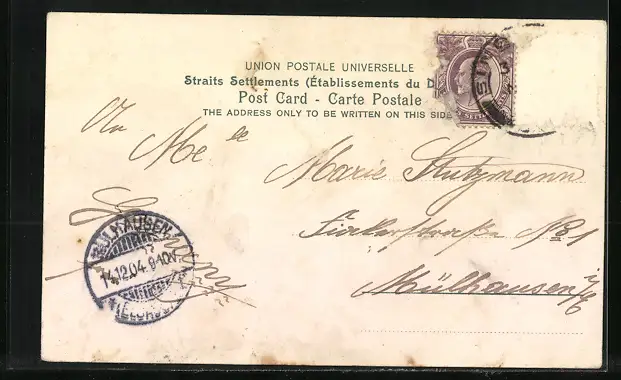 UNION POSTALE UNIVERSELLE
Straits Settlements (Établissements du D
Post Card - Carte Postale
THE ADDRESS ONLY TO BE WRITTEN ON THIS SIDE
An
Melle Marie Stutzmann
No 1
Mülhausen i/E
Germany
MÜLHAUSEN
14.12.04. 9-10V
(ELSASS)
SETTLE